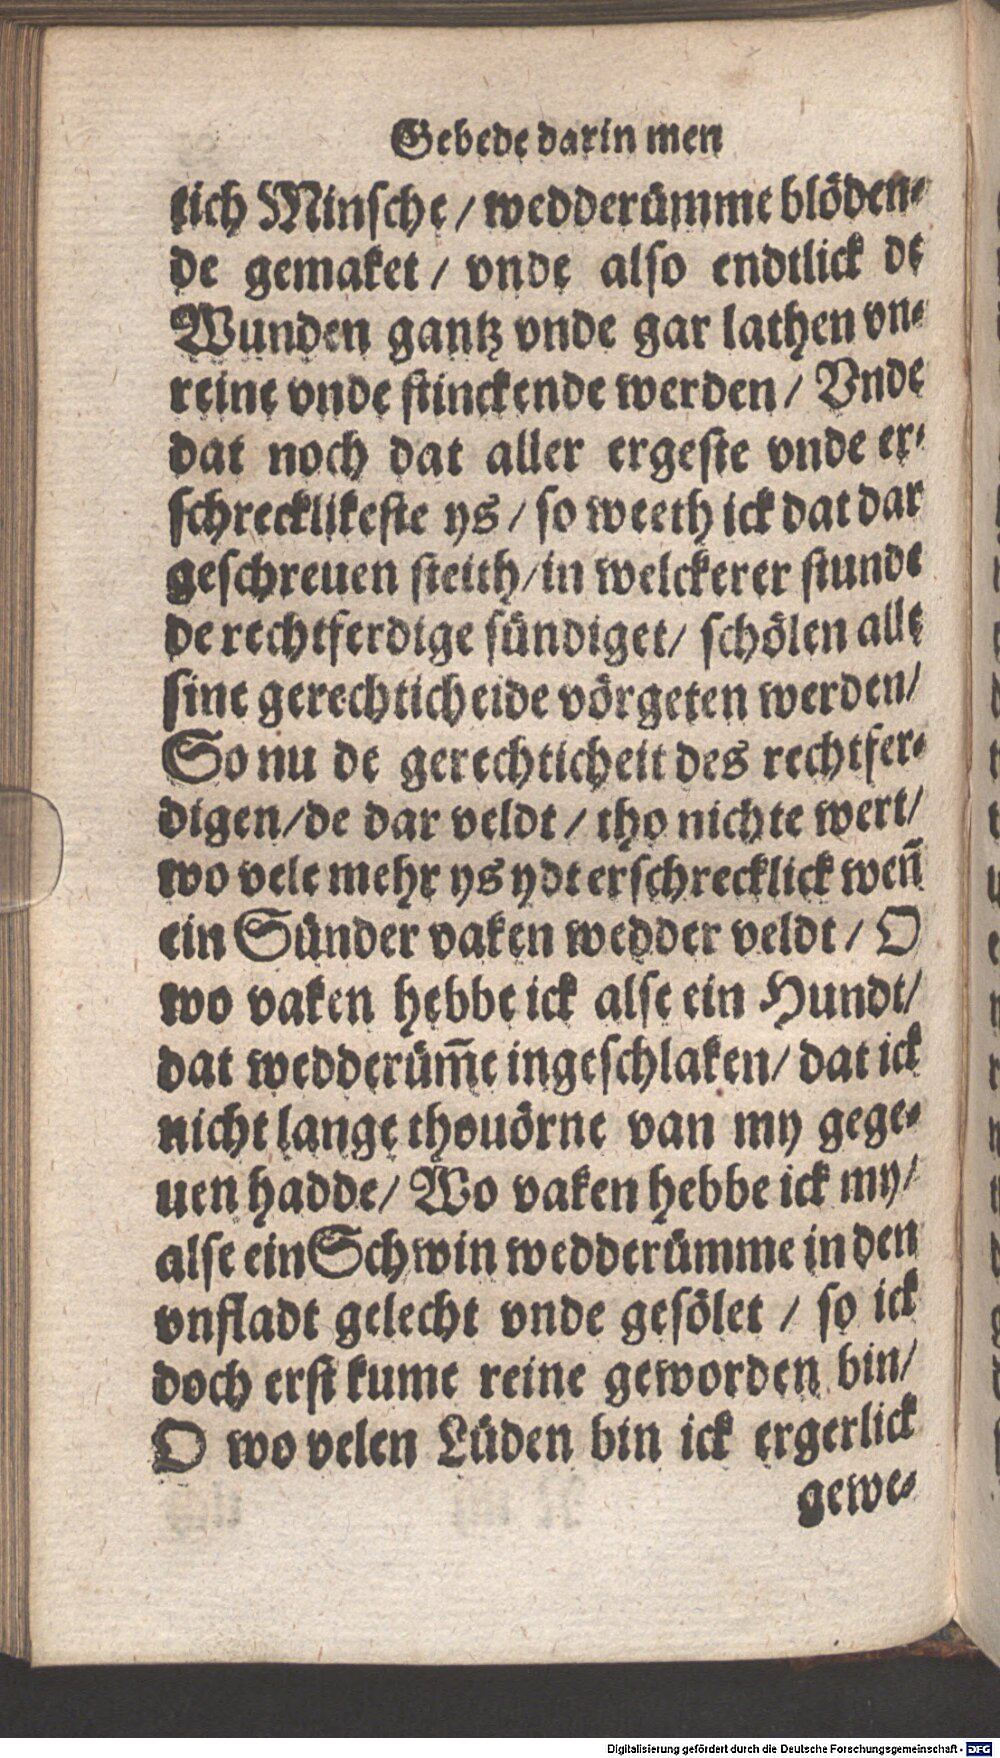 Gebede darin men
tich Minsche / wedderümme blöden-
de gemaket / vnde also endtlick de
Wunden gantz vnde gar lathen vn-
reine vnde stinckende werden / Vnde
dat noch dat aller ergeste vnde er-
schrecklikeste ys / so weeth ick dat dar
geschreuen steith / in welckerer stunde
de rechtferdige sündiget / schölen alle
sine gerechticheide vörgeten werden /
So nu de gerechticheit des rechtfer-
digen / de dar veldt / tho nichte wert /
wo vele mehr ys ydt erschrecklick wen̄
ein Sünder vaken wedder veldt / O
wo vaken hebbe ick alse ein Hundt /
dat wedderüm̄e ingeschlaken / dat ick
nicht lange thouörne van my gege-
uen hadde / Wo vaken hebbe ick my /
alse ein Schwin wedderümme in den
vnfladt gelecht vnde gesölet / so ick
doch erst kume reine geworden bin /
O wo velen Lüden bin ick ergerlick
gewe-
Digitalisierung gefördert durch die Deutsche Forschungsgemeinschaft - DFG